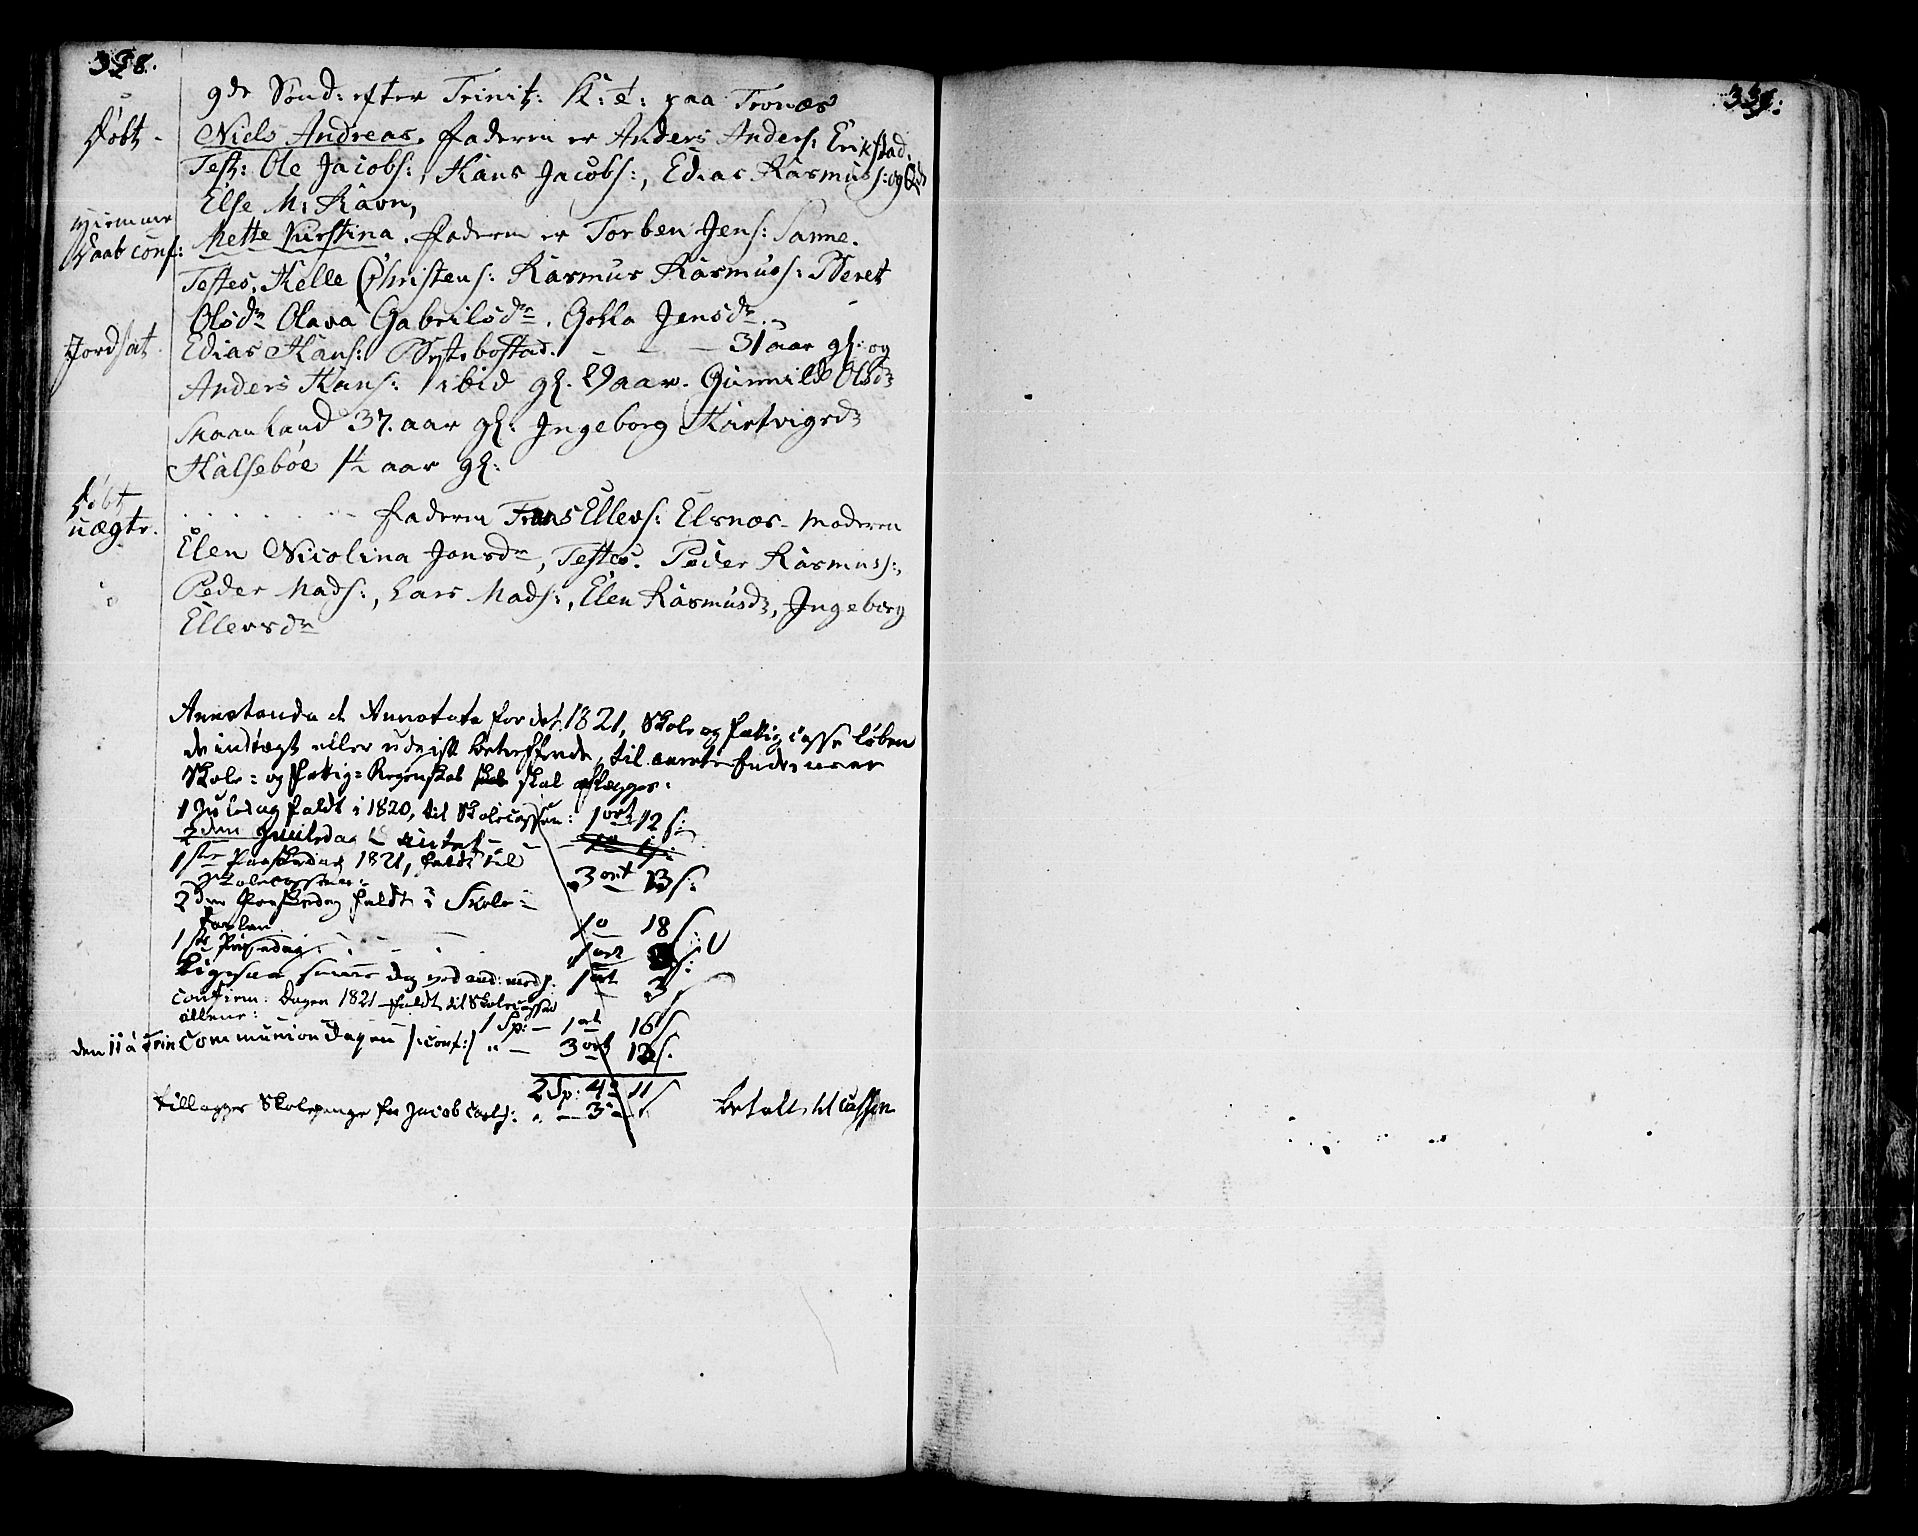 338.
9de Sønd: efter Trinit: K: t: paa Tronæs
Døbt - Niels Andreas. Faderen er Anders Anders: Erikstad.
Test: Ole Jacobs:, Hans Jacobs:, Edias Rasmus: og
Else M: Ravn,
Hiemme Daab conf: Mette Kirstina. Faderen er Torben Jens: Sanne.
Testes, Helle Christens: Rasmus Rasmuss: Beret
Olsdr Olava Gabrielsdr. Golla Jensdr.
Jordsat. Edias Hans: Bystebostad. - - - 31 aar gl: og
Anders Hans: ibid gl. 29 aar. Gunnild Olsdr
Skaanland 37. aar gl. Ingeborg Hartvigsdr
Halsebøe 1/2 aar gl:
Døbt uægte. Faderen Frans Ellevs: Elsnæs - Moderen
Elen Nicolina Jonsdr, Testes. Peder Rasmuss:,
Peder Mads:, Lars Mads:, Elen Rasmusdr, Ingeborg
Ellevsdr
Annotanda et Annotata for det 1821, Skole og Fattig casse løben
de indtægt eller udgift betreffende, til
Skole= og Fattig= Regnskab skal aflægges:
1 Juledag faldt i 1820, til Skolecassen: 1 ort 12 s:
2den Juuledag - -
1ste Paaskedag 1821, faldt til
Skolecassen: 3 ort 13 s:
2den Paaskedag faldt i Skole=
tavlen 1o 18 s
1ste Pinsedag: - - 1 ort s:
Ligesaa samme Dag ved 1 ort 3 s
confirm: Dagen 1821 faldt til Skolecassen
allene: 1 Sp: - 1 ort 16 s
den 11 à Trin Communion Dagen /:conf:/ " - 3 ort 12 s.
2 Sp: 4o 11 s
tillægges Skolepenge for Jacob Carls: " - 3 - " betalt til cassen
339: